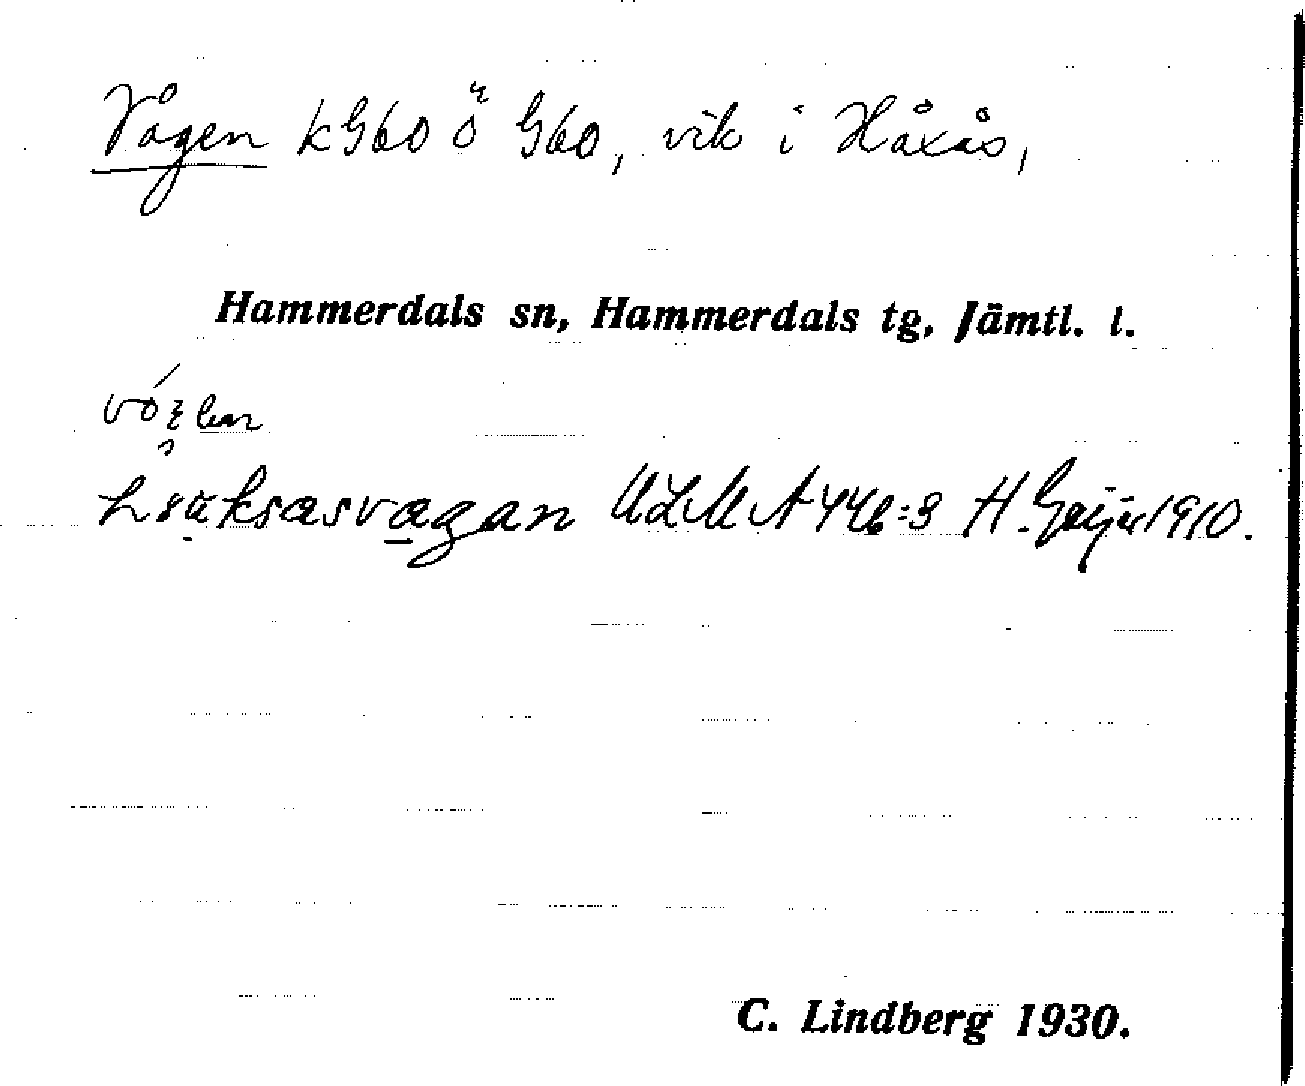 Vågen kG60 ö G60, vik i Håxås,
Hammerdals sn, Hammerdals tg, Jämtl. l.
ULMA 446:8 H. Geijer 1910.
C. Lindberg 1930.